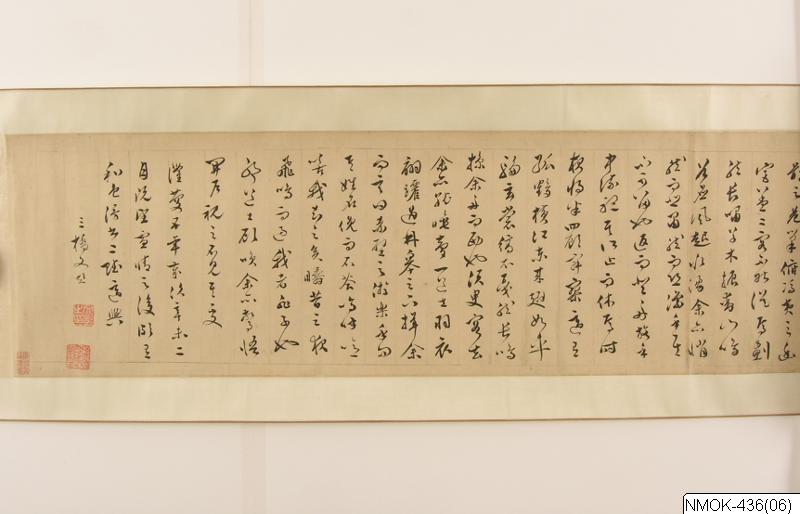 之危巢俯馮夷之幽
宮蓋二客不能從焉劃
然長嘯草木振動山鳴
谷應風起水涌余亦悄
然而悲肅然而恐凜乎其
不可留也返而登舟放乎
中流聽其所止而休焉時
夜將半四顧寂寥適有
孤鶴橫江東來翅如車
輪玄裳縞衣戛然長鳴
掠余舟而西也須臾客去
余亦就睡夢一道士羽衣
翩躚過臨皋之下揖余
而言曰赤壁之遊樂乎問
其姓名俛而不答嗚呼噫
嘻我知之矣疇昔之夜
飛鳴而過我者非子也
耶道士顧笑余亦驚悟
開戶視之不見其處
隆慶五年歲次辛未二
月既望雪晴之後頗有
和色漫書二賦遣興
三橋文彭
NMOK-436(06)